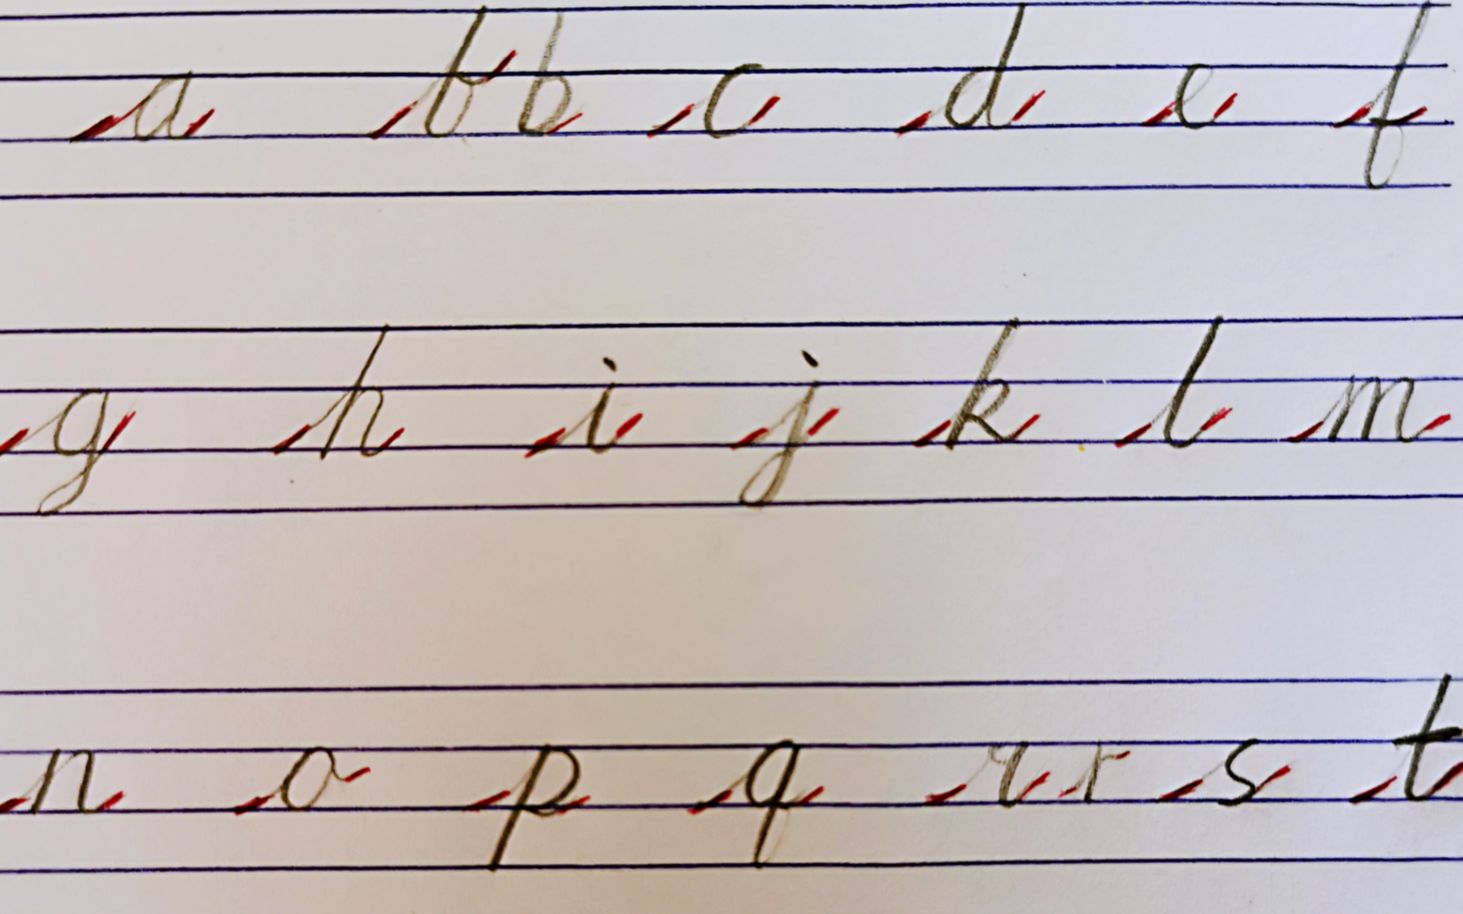 a b b c d e f
g h i j k l m
n o p q r r s t